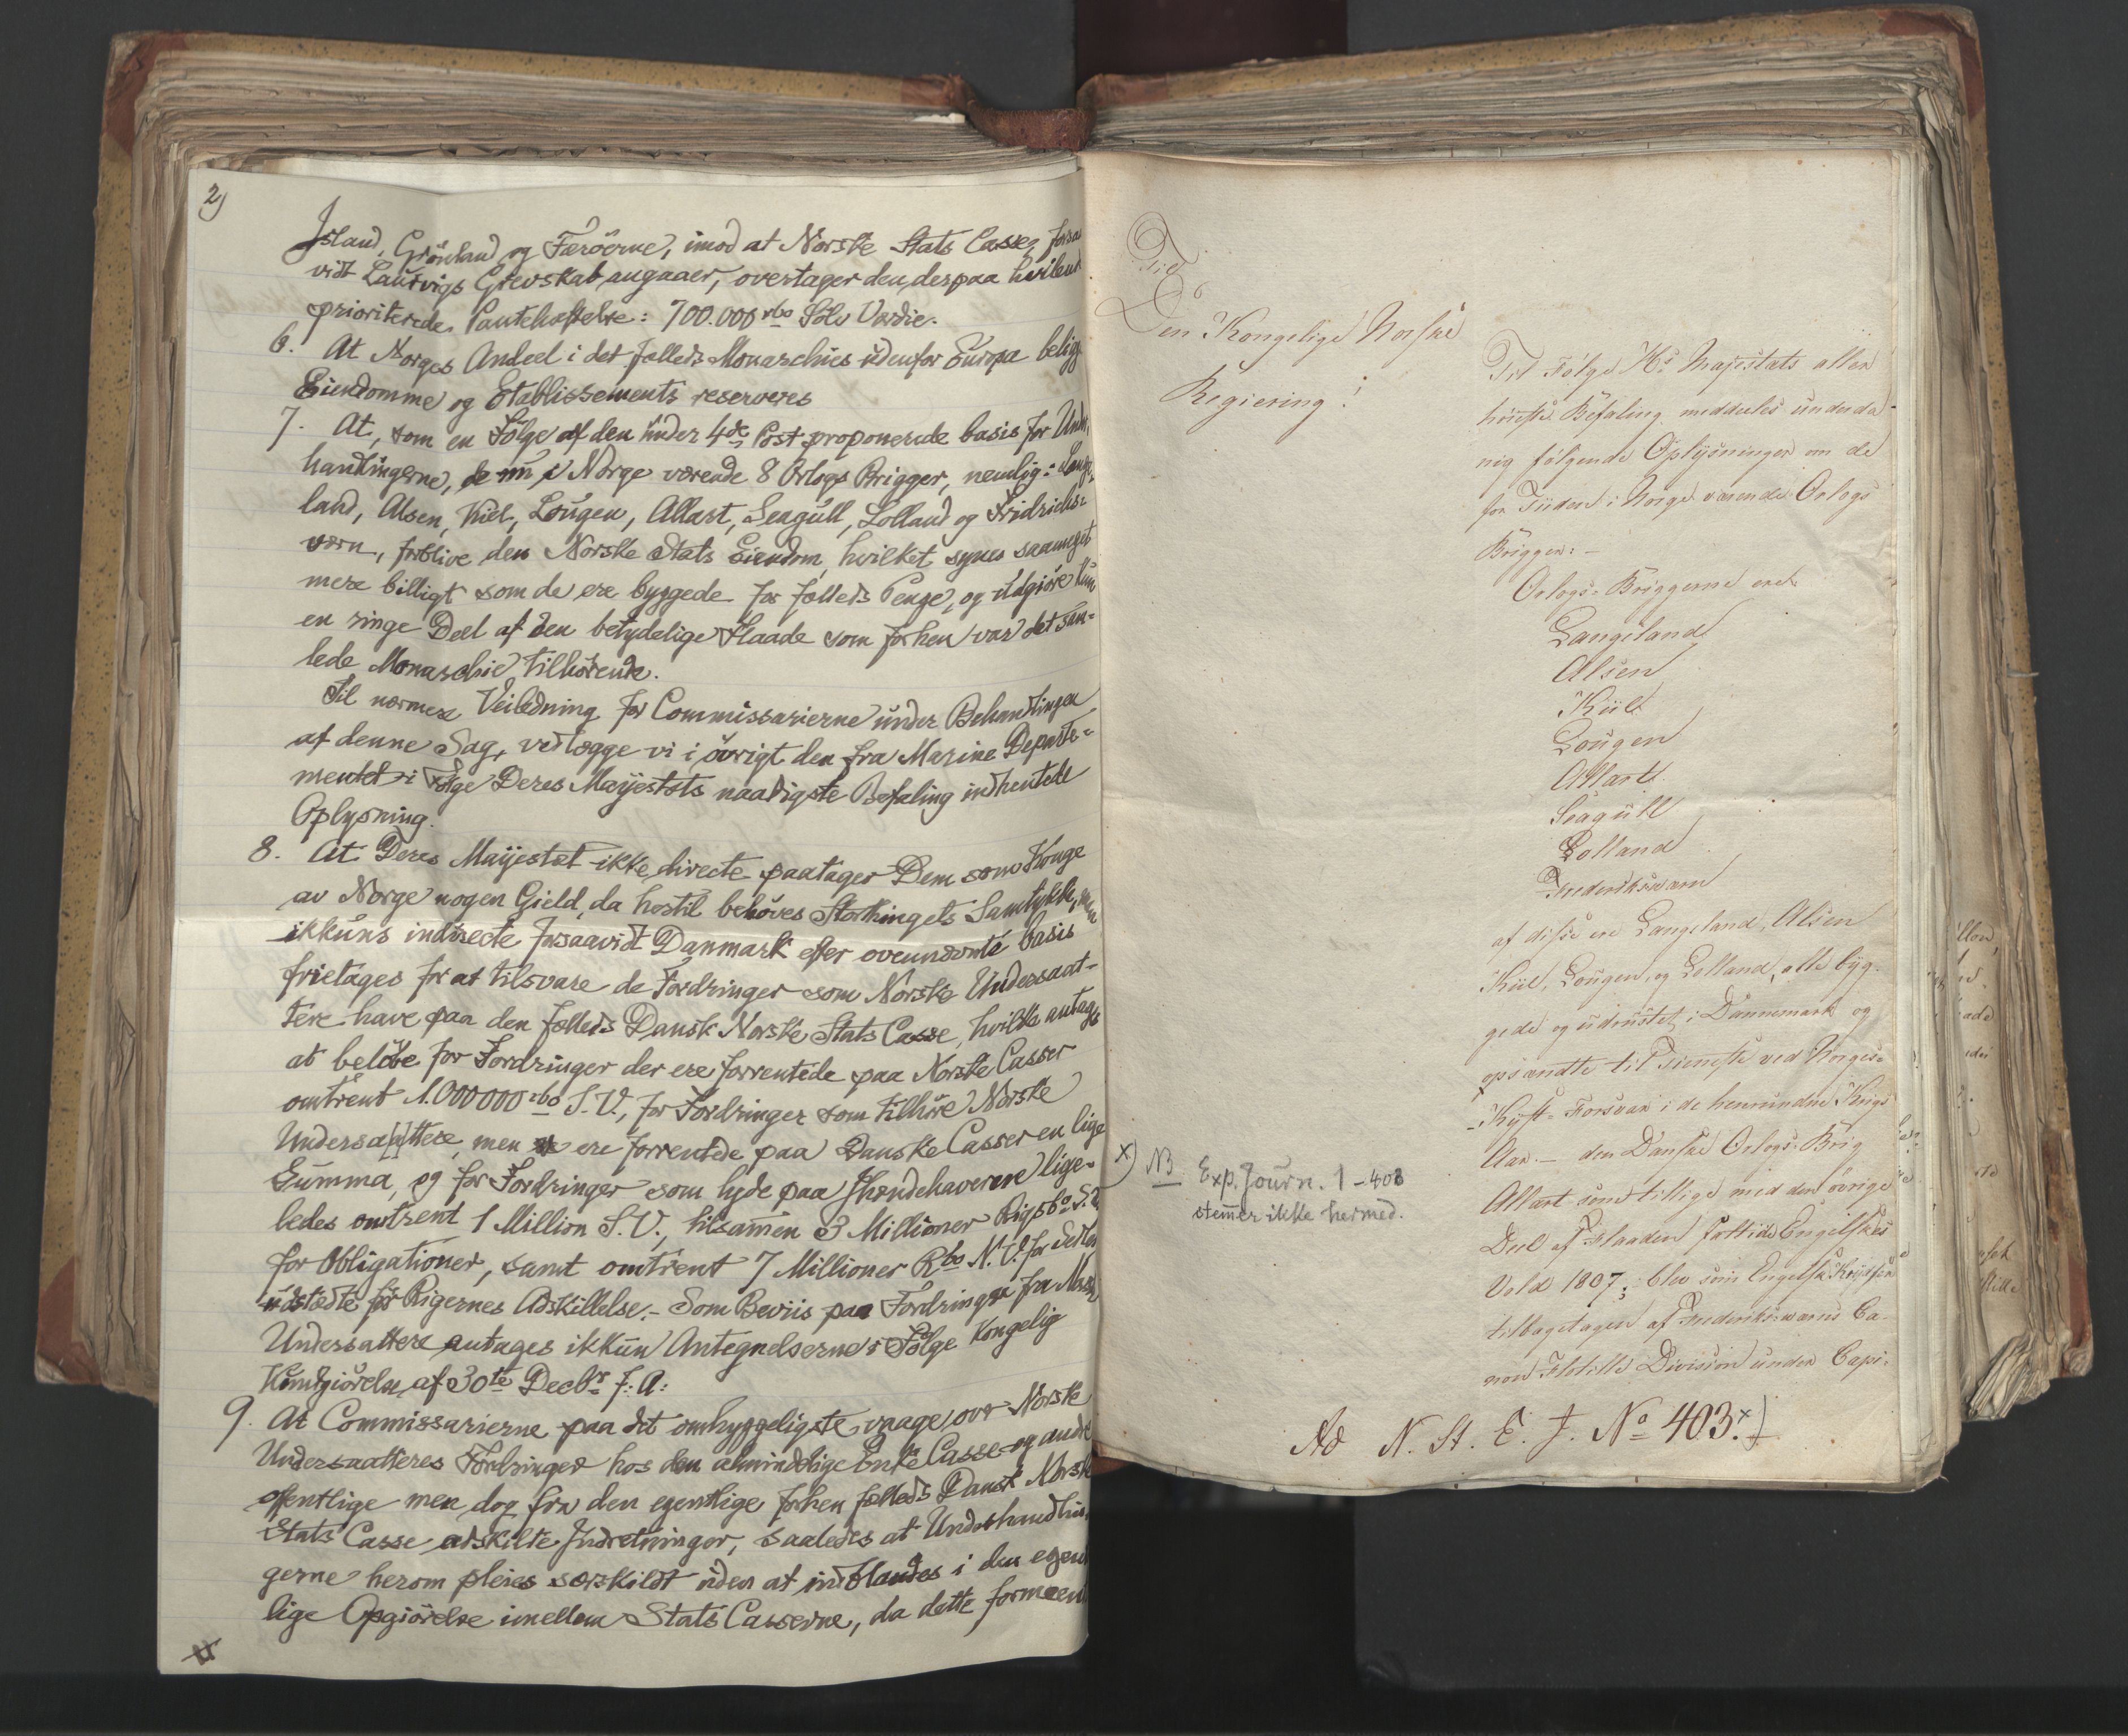 2)
Island, Grönland og Færöerne, imod at Norske Stats Casse, forsaa
vidt Laurvigs Grevskab angaaer, overtager den derpaa hvilende
prioriterede Pantehæftelse: 700.000 rbd Sölv Værdie.
6. At Norges Andeel i det fælleds Monarchies udenfor Europa belig
Eiendomme og Etablissements reserveres
7. At, som en Fölge af den under 4de Post proponerede basis for Und
handlingerne, de nu i Norge værende 8 Orlogs Brigger, nemlig: Lange
land, Alsen, Kiel, Lougen, Allart, Seagull, Lolland og Fridrichs=
værn, forblive den Norske Stats Eiendom, hvilket synes saameget
mere billigt som de ere byggede for fælleds Penge, og udgiöre kun
en ringe Deel af den betydelige Flaade som forhen var det sam=
lede Monarchie tilhörende.
Til nærmere Veiledning for Commissarierne under Behandlingen
af denne Sag, vedlægge vi i övrigt den fra Marine Departe=
mentet i Fölge Deres Mayestæts naadigste Befaling indhentede
Oplysning.
8. At Deres Mayestæt ikke directe paatager Dem som Konge
av Norge nogen Gield, da hertil behöves Storthingets Samtykke, men
ikkuns indirecte forsaavidt Danmark efter ovennævnte basis
frietages for at tilsvare de Fordringer som Norske Undersaat-
tere have paa den fælleds Dansk Norske Stats Casse, hvilke antages
at belöbe for Fordringer der ere forrentede paa Norske Casser
omtrent 1.000000 rbd S.V., for Fordringer som tilhöre Norske
Undersa[a]ttere, men ere forrentede paa Danske Casser en lige
Summa, og for Fordringer som lyde paa Ihændehaveren lige-
ledes omtrent 1 Million S.V., tilsammen 3 Millioner Rigsbd. S.V.
for Obligationer, samt omtrent 7 Millioner Rbd N.V. for Sedler
udstædte för Rigernes Adskillelse. – Som Beviis paa Fordringer fra Norske
Undersattere antages ikkun Antegnelserne i Fölge Kongelig
Kundgiörelse af 30te Decbr f: A:
9. At Commissarierne paa det omhyggeligste vaage over Norske
Undersaatteres Fordringer hos den almindelige Enke Casse og andre
offentlige men dog fra den egentlige forhen fælleds Dansk Norske
Stats Casse adskilte Indretninger, saaledes at Underhandlin
gerne herom pleies særskildt uden at indblandes i den egent
lige Opgiörelse imellem Stats Casserne, da dette formeent
Til
Den Kongelige Norske
Regiering!
Til Fölge Hs Majestæts aller
höieste Befaling meddeeles underda-
nig fölgende Oplysninger om de
for Tiiden i Norge værende Orlogs
Brigger: –
Orlogs-Briggerne ere
Langeland
Alsen
Kiel
Lougen
Allart
Seagull
Lolland
Frederiksværn
af disse ere Langeland, Alsen
Kiel, Lougen, og Lolland, alle byg-
gede og udrustet i Dannemark og
opsændte til Tieneste ved Norges-
-Kyst-Forsvar i de henrundne Krigs
Aar. – den Danske Orlogs-Brig
Allart som tillige med den övrige
Deel af Flaaden faldt i de Engelskes
Vold 1807; blev som Engelsk Krydser
tilbagetagen af Frederiksværns Ca-
non Flotille Division under Capi-
x) NB. Exp. Journ. 1 – 403
stemmer ikke hermed.
Ad N. St. E. J. No 403. x)